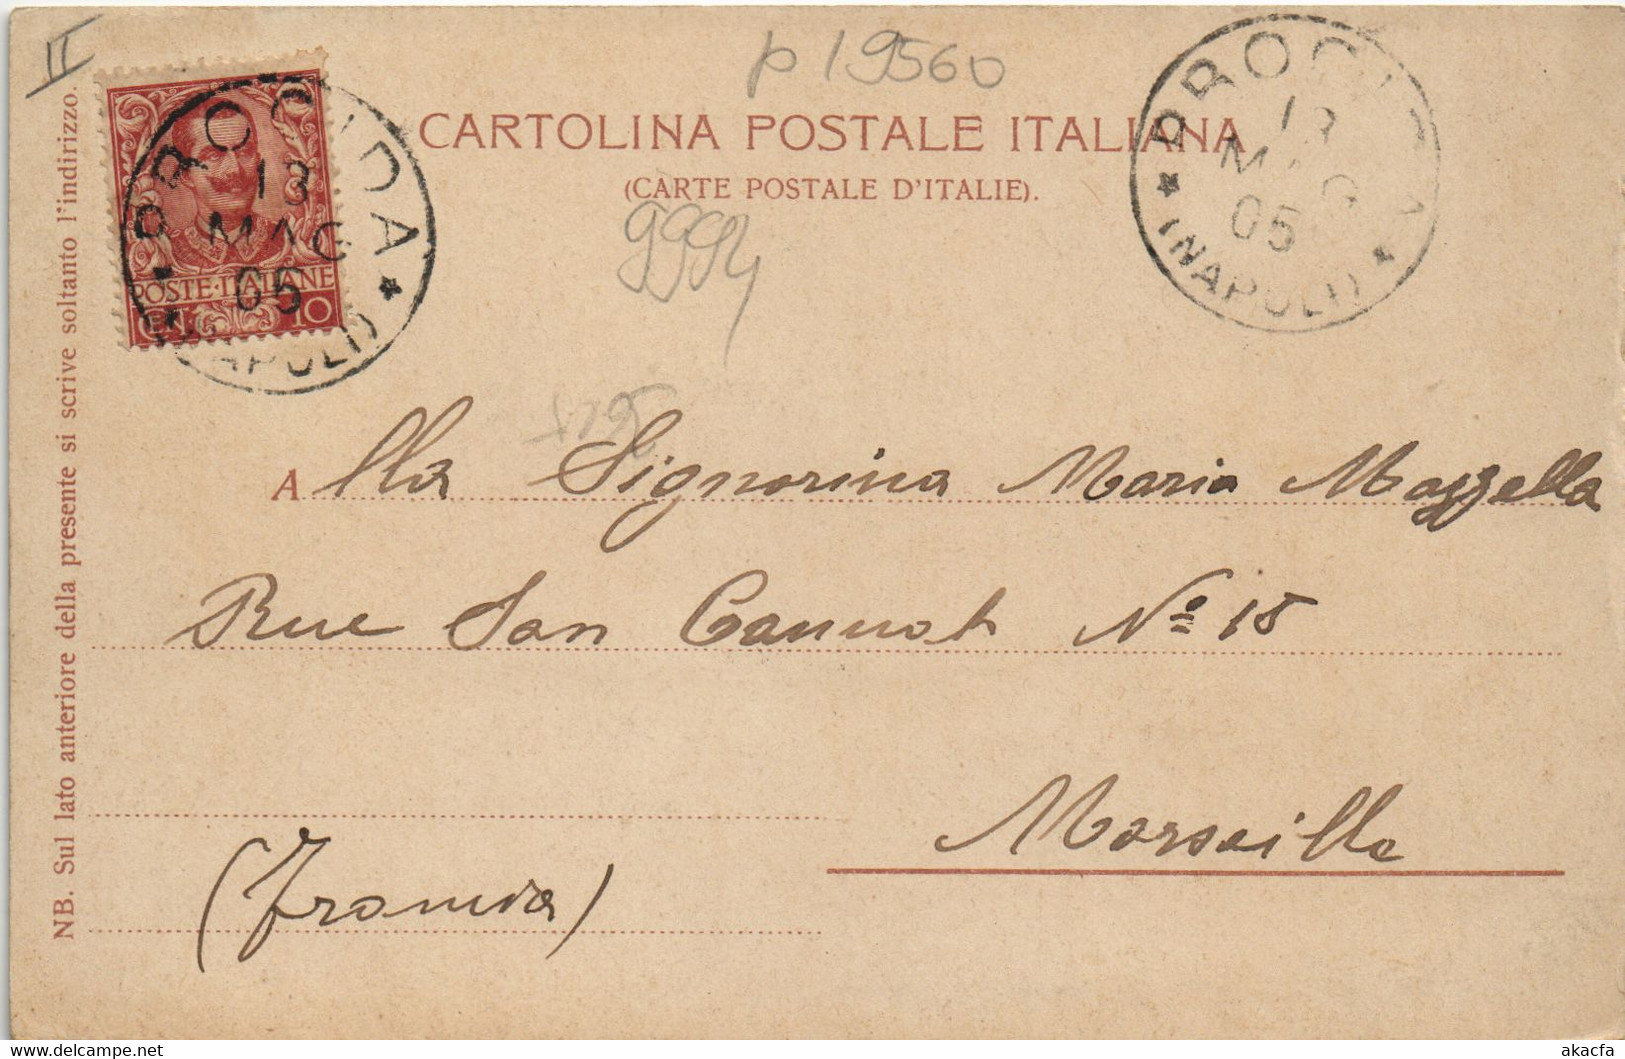 II
p 19560
CARTOLINA POSTALE ITALIANA
(CARTE POSTALE D'ITALIE).
PROCIDA
13
MAG
05
(NAPOLI)
POSTE·ITALIANE
10
PROCIDA
13
MAG
05
(NAPOLI)
9994
Alla Signorina Maria Mazzella
Rue San Cannat Nº 15
Marseille
(Francia)
NB. Sul lato anteriore della presente si scrive soltanto l'indirizzo.
akacfa